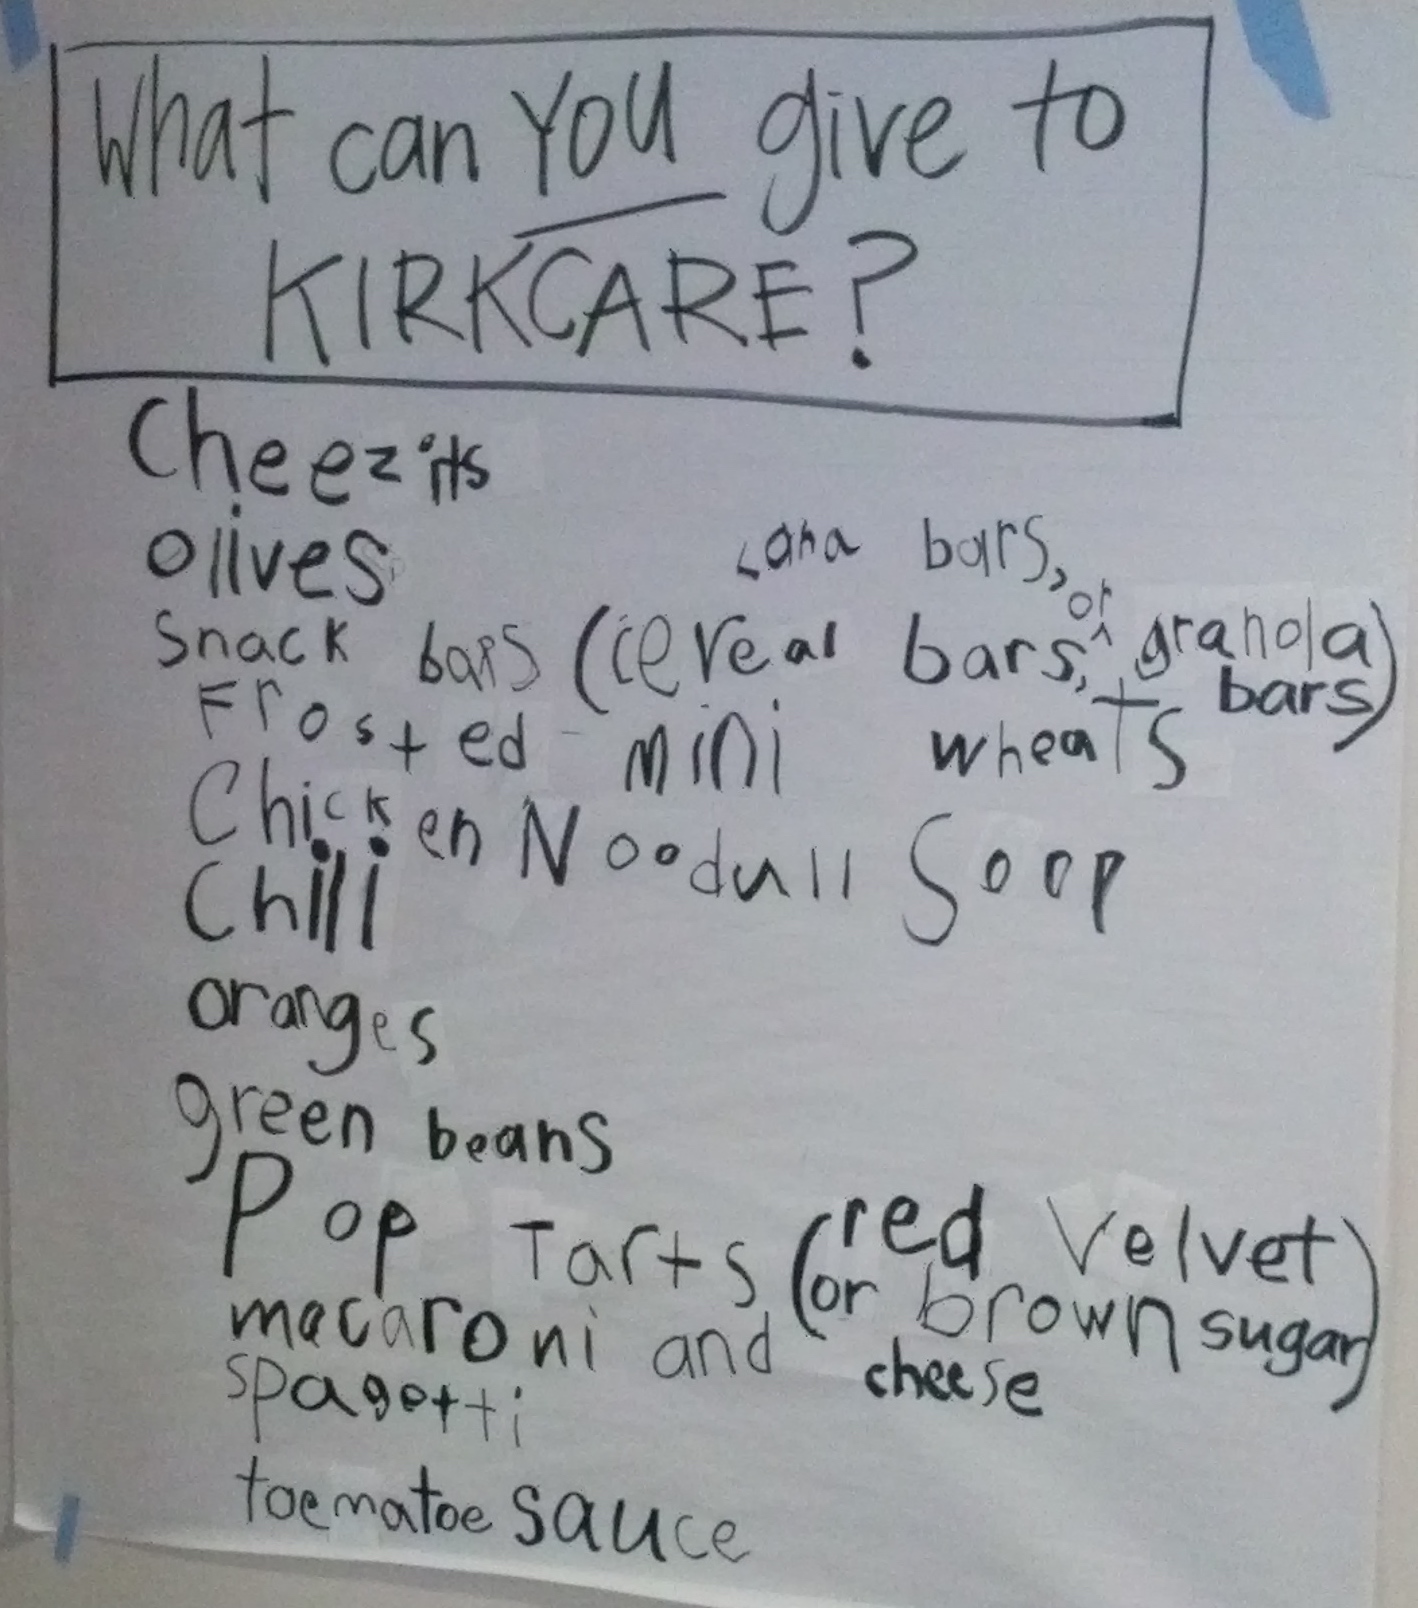 What can YOU give to
KIRKCARE?
Cheez its
olives
Lana bars,
Snack bars (cereal bars, or granola
bars)
Frosted mini wheats
Chicken Noodull Soop
Chili
oranges
green beans
Pop Tarts (red velvet
or brown sugar)
macaroni and cheese
spagetti
toematoe sauce